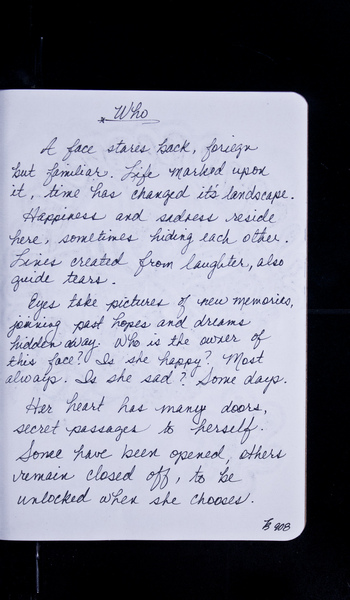 * Who
A face stares back, foriegn
but familiar. Life marked upon
it, time has changed it's landscape.
Happiness and sadness reside
here, sometimes hiding each other.
Lines created from laughter, also
guide tears.
Eyes take pictures of new memories,
joining past hopes and dreams
hidden away. Who is the owner of
this face? Is she happy? Most
always. Is she sad? Some days.
Her heart has many doors,
secret passages to herself.
Some have been opened, others
remain closed off, to be
unlocked when she chooses.